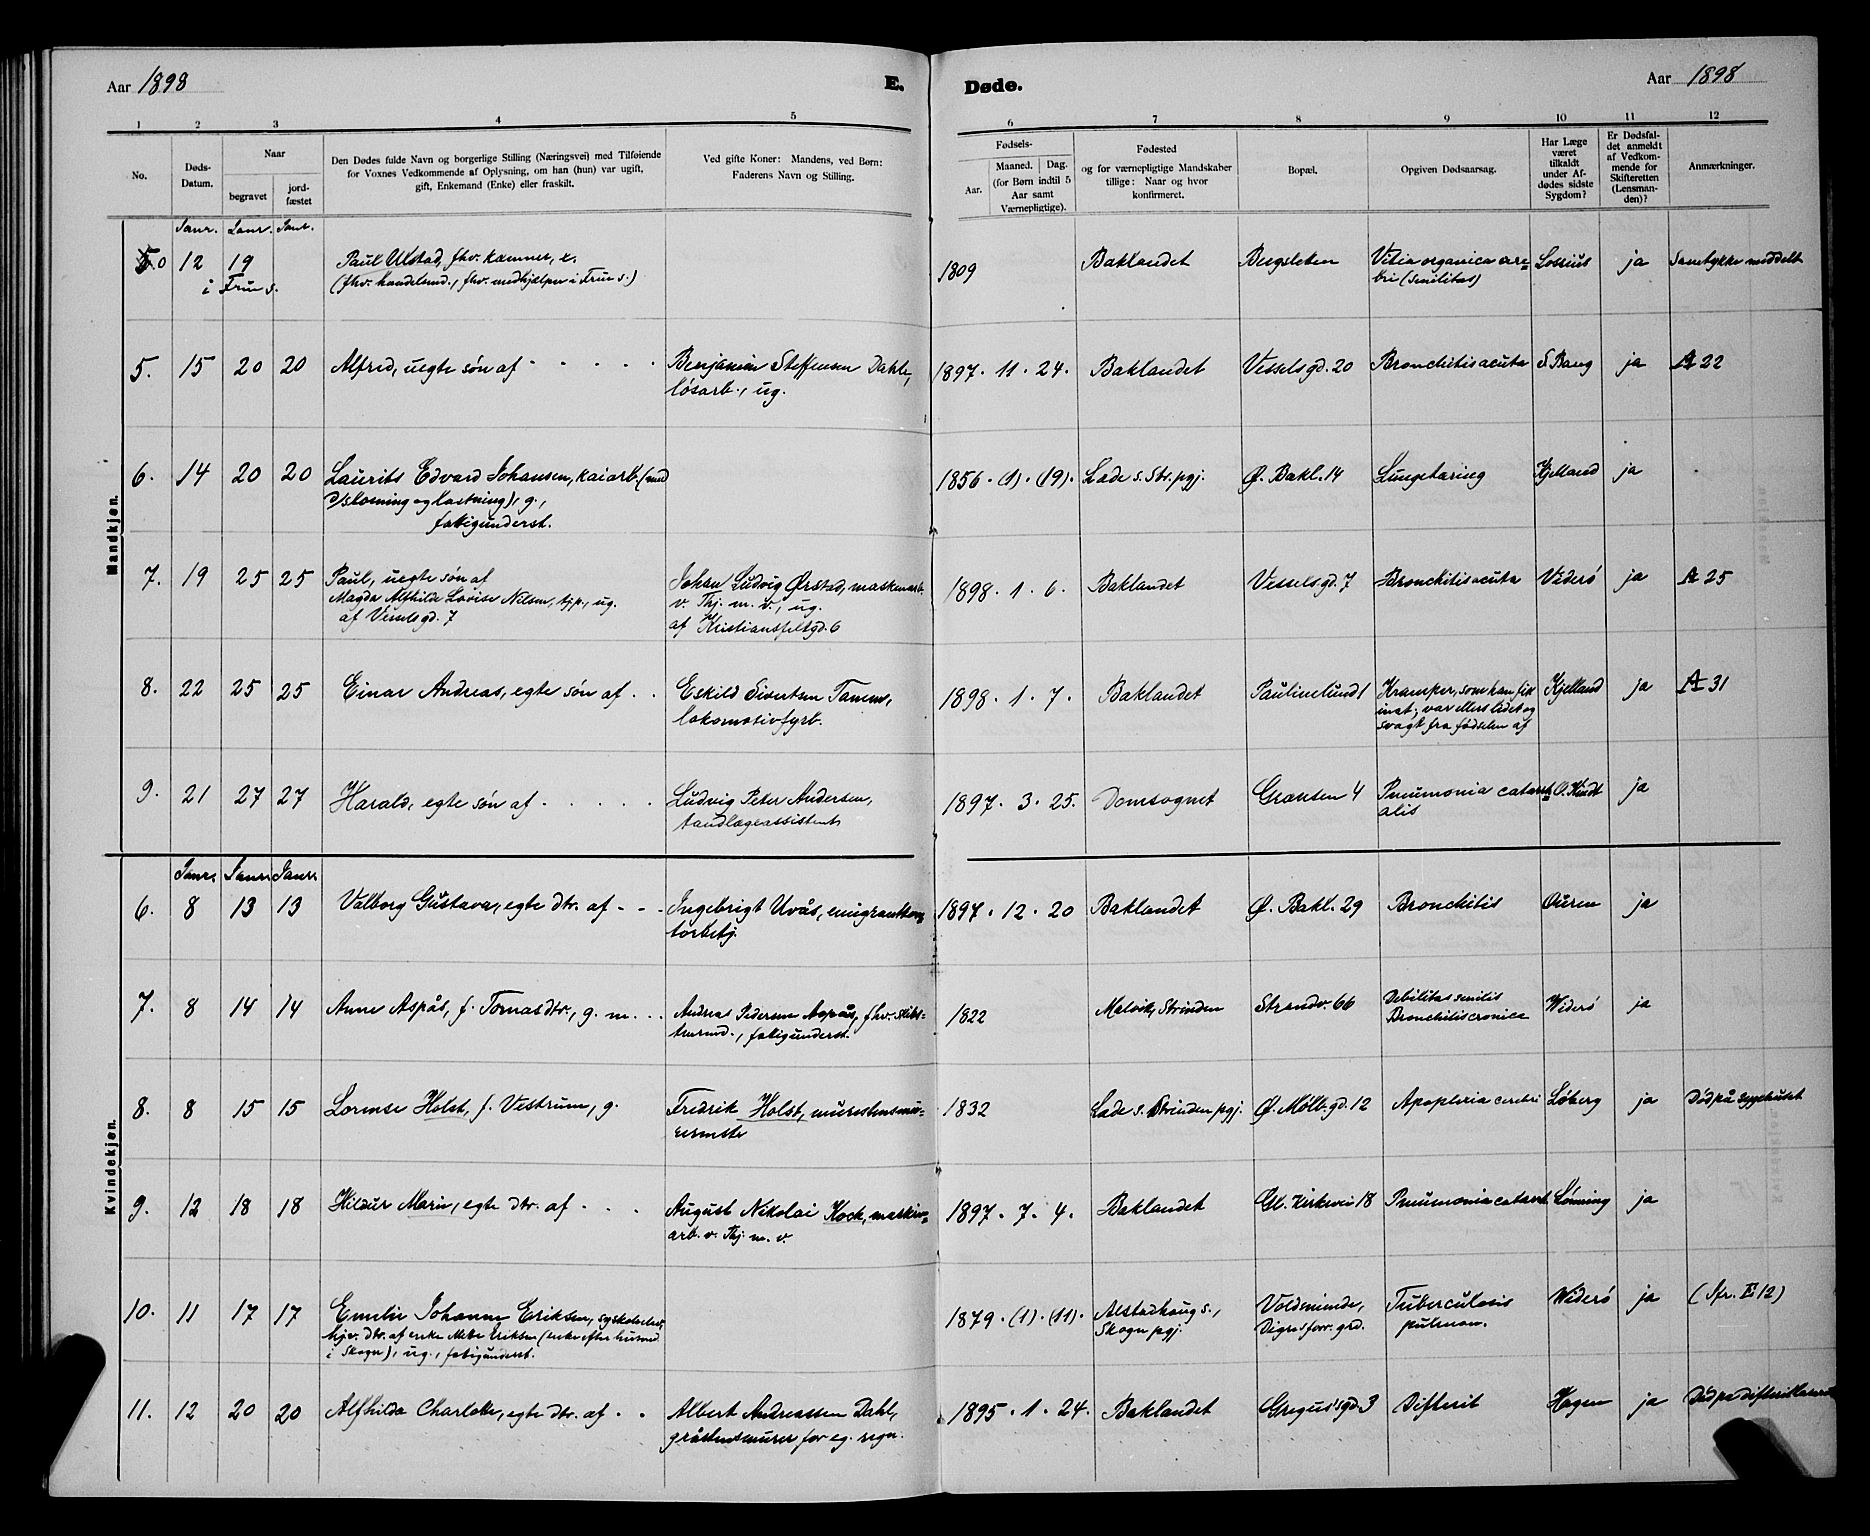 Aar 1898
E.
Døde.
Aar 1898
1 2 3 4 5 6 7 8 9 10 11 12
No.
Døds-
Datum.
Naar
begravet
jord-
fæstet
Den Dødes fulde Navn og borgerlige Stilling (Næringsvei) med Tilføiende
for Voxnes Vedkommende af Oplysning, om han (hun) var ugift,
gift, Enkemand (Enke) eller fraskilt.
Ved gifte Koner: Mandens, ved Børn:
Faderens Navn og Stilling.
Fødsels-
Aar.
Maaned.
Dag.
(for Børn indtil 5
Aar samt
Værnepligtige).
Fødested
og for værnepligtige Mandskaber
tillige: Naar og hvor
konfirmeret.
Bopæl.
Opgiven Dødsaarsag.
Har Læge
været
tilkaldt
under Af-
dødes sidste
Sygdom?
Er Dødsfal-
det anmeldt
af Vedkom-
mende for
Skifteretten
(Lensman-
den)?
Anmærkninger.
Mandkjøn.
Janr. Janr. Janr.
0 12 19 Paul Ulstad, fhv. kæmner, e. 1809 Baklandet Bergsleten Vitia organica cere= Lossius ja Samtykke meddelt
i Frue s. (fhv. handelsmd., fhv. medhjælper i Frue s.) bri (senilitas)
5. 15 20 20 Alfred, uegte søn af - - - - - Benjamin Steffensen Dahle, 1897 . 11 . 24. Baklandet Vesselsgd. 20 Bronchitis acuta S Bang ja A 22
løsarb., ug.
6. 14 20 20 Laurits Edvard Johansen, kaiarb. (med 1856 . (1) . (19). Lade s. Str. pgj. Ø. Bakl. 14 Lungetæring Kjelland ja
D/slosning og lastning), g.,
fattigunderst.
7. 19 25 25 Paul, uegte søn af Johan Ludvig Ørstad, maskinarb. 1898 . 1 . 6. Baklandet Vesselsgd. 7 Bronchitis acuta Viderø ja A 25
Magda Alfhilde Lovise Nilsen, tjp., ug. v. Thj. m. v., ug.
af Vesselsgd. 7 af Kristiansfeltgd. 6
8. 22 25 25 Einar Andreas, egte søn af . . Eskild Sivertsen Tanem, 1898 . 1 . 7. Baklandet Paulinelund 1 Kramper, som han fik Kjelland ja A 31
lokomotivfyrb. inat; var ellers lidet og
svagt fra fødselen af
9. 21 27 27 Harald, egte søn af - - - - - Ludvig Peter Andersen, 1897 . 3 . 25. Domsognet Grænsen 4 Pneumonia catarrh= O. Kindt ja
tandlægeassistent alis
Kvindekjøn.
Janr. Janr. Janr.
6. 8 13 13 Valborg Gustava, egte dtr. af - - - Ingebrigt Uvås, emigrantkon= 1897 . 12 . 20 Baklandet Ø. Bakl. 29 Bronchitis Ouren ja
torbetj.
7. 8 14 14 Anne Aspås, f. Tomasdtr., g. m. . . . Andreas Pedersen Aspås, fhv. skibs= 1822 Malvik, Strinden Strandv. 66 Debilitas senilis Widerø ja
tmrmd., fattigunderst. Bronchitis cronica
8. 8 15 15 Lorense Holst, f. Vestrum, g. Fredrik Holst, murestensmu= 1832 Lade s. Strinden pgj. Ø. Møllbgd. 12 Apoplexia cerebri Løberg ja Død på sygehuset
rermster
9. 12 18 18 Hildur Marie, egte dtr. af . . . August Nikolai Koch, maskin= 1897 . 7 . 4. Baklandet Gl. Kirkevei 18 Pneumonia catarrh. Lønning ja
arb. v. Thj. m. v.
10. 11 17 17 Emelie Johanne Eriksen, 1879 . (1) . (11). Alstadhaug s., Voldsminde, Tuberculosis Widerø ja (Sfr. E 12)
hjv. dtr. af enke Eriksen (enke efter husmd Skogn pgj. pulmon.
i Skogn), ug., fattigunderst.
11. 12 20 20 Alfhilda Charlotte, egte dtr. af . . Albert Andreassen Dahl, 1895 . 1 . 24. Baklandet Gregusgd. 3 Difterit Hagen ja
gråstensmurer for eg. regn.